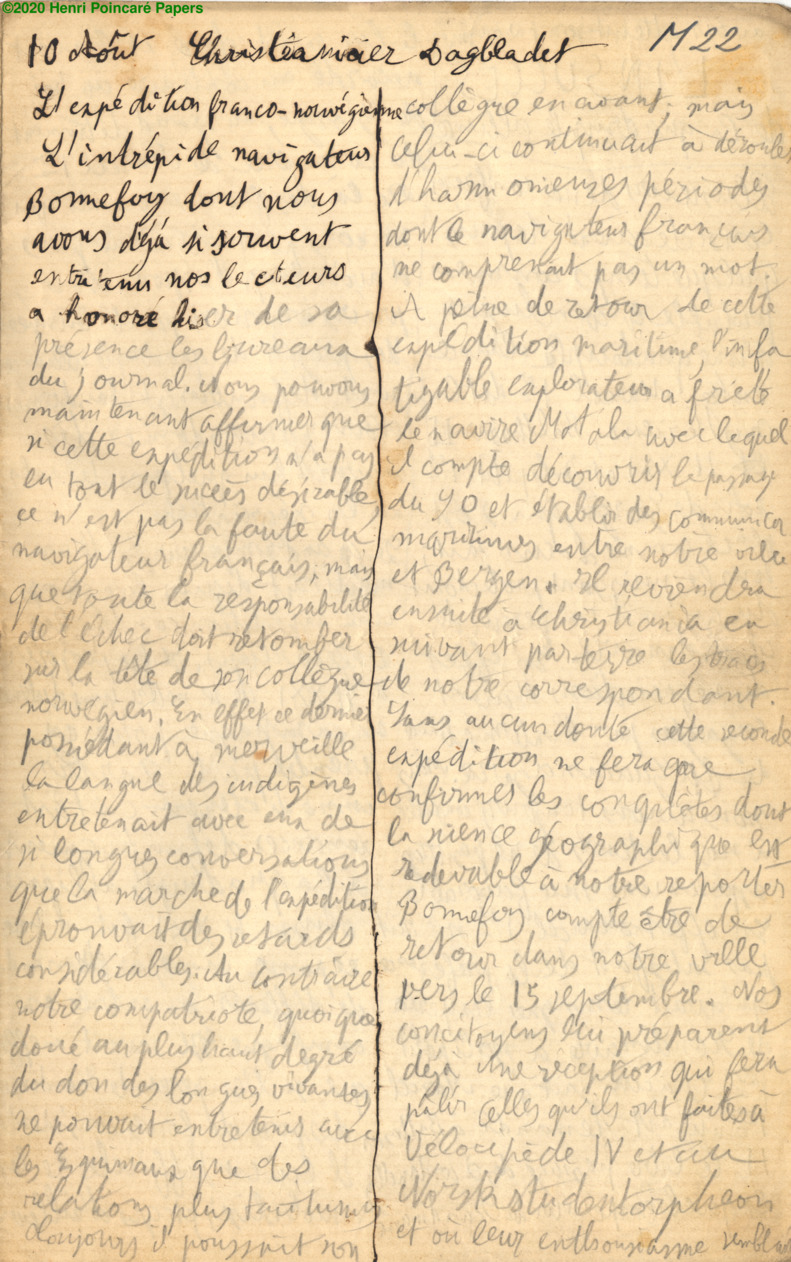 ©2020 Henri Poincaré Papers
10 Août Christianiaer Dagbladet M 22
L'expédition franco-norwégienne
L'intrépide navigateur
Bonnefoy dont nous
avons déjà si souvent
entretenu nos lecteurs
a honoré hier de sa
présence les bureaux
du journal. Nous pouvons
maintenant affirmer que
si cette expédition n'a pas
eu tout le succès désirable,
ce n'est pas la faute du
navigateur français, mais
que toute la responsabilité
de l'échec doit retomber
sur la tête de son collègue
norwégien. En effet ce dernier
possédant à merveille
la langue des indigènes
entretenait avec eux de
si longues conversations
que la marche de l'expédition
éprouvait des retards
considérables. Au contraire
notre compatriote, quoique
doué au plus haut degré
du don des langues vivantes,
ne pouvait entretenir avec
les Esquimaux que des
relations plus taciturnes
Toujours il poussait son
collègue en avant, mais
celui-ci continuait à dérouler
d'harmonieuses périodes
dont le navigateur français
ne comprenait pas un mot.
A peine de retour de cette
expédition maritime, l'infa
tigable explorateur a frété
le navire Motala avec lequel
il compte découvrir le passage
du SO et établir des communica
maritimes entre notre ville
et Bergen. Il reviendra
ensuite à Christiania en
suivant par terre les traces
de notre correspondant.
Sans aucun doute cette seconde
expédition ne fera que
confirmer les conquêtes dont
la science géographique est
redevable à notre reporter
Bonnefoy compte être de
retour dans notre ville
vers le 15 septembre. Nos
concitoyens lui préparent
déjà une réception qui fera
pâlir celles qu'ils ont faites à
Vélocipède IV et au
Norskstudentorpheon
et où leur enthousiasme semblait